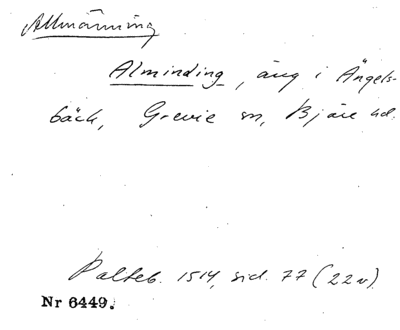 Allmänning
Alminding, äng i Ängels-
bäck, Grevie sn, Bjäre hd.
Palteb. 1514, sid. 77 (22v)
Nr 6449.